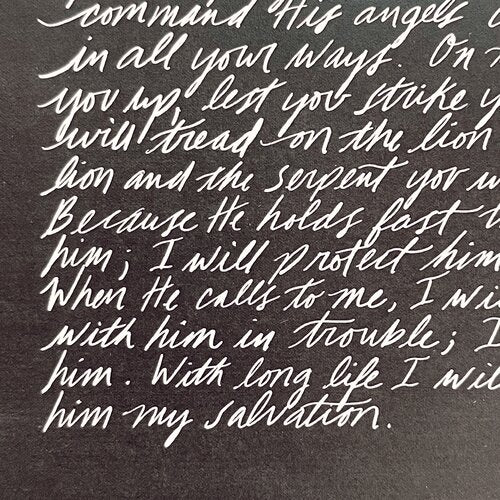 command His angels
in all your ways. On
you up, lest you strike
will tread on the lion
lion and the serpent you
Because He holds fast
him; I will protect him
When He calls to me, I
with him in trouble; I
him. With long life I
him my salvation.